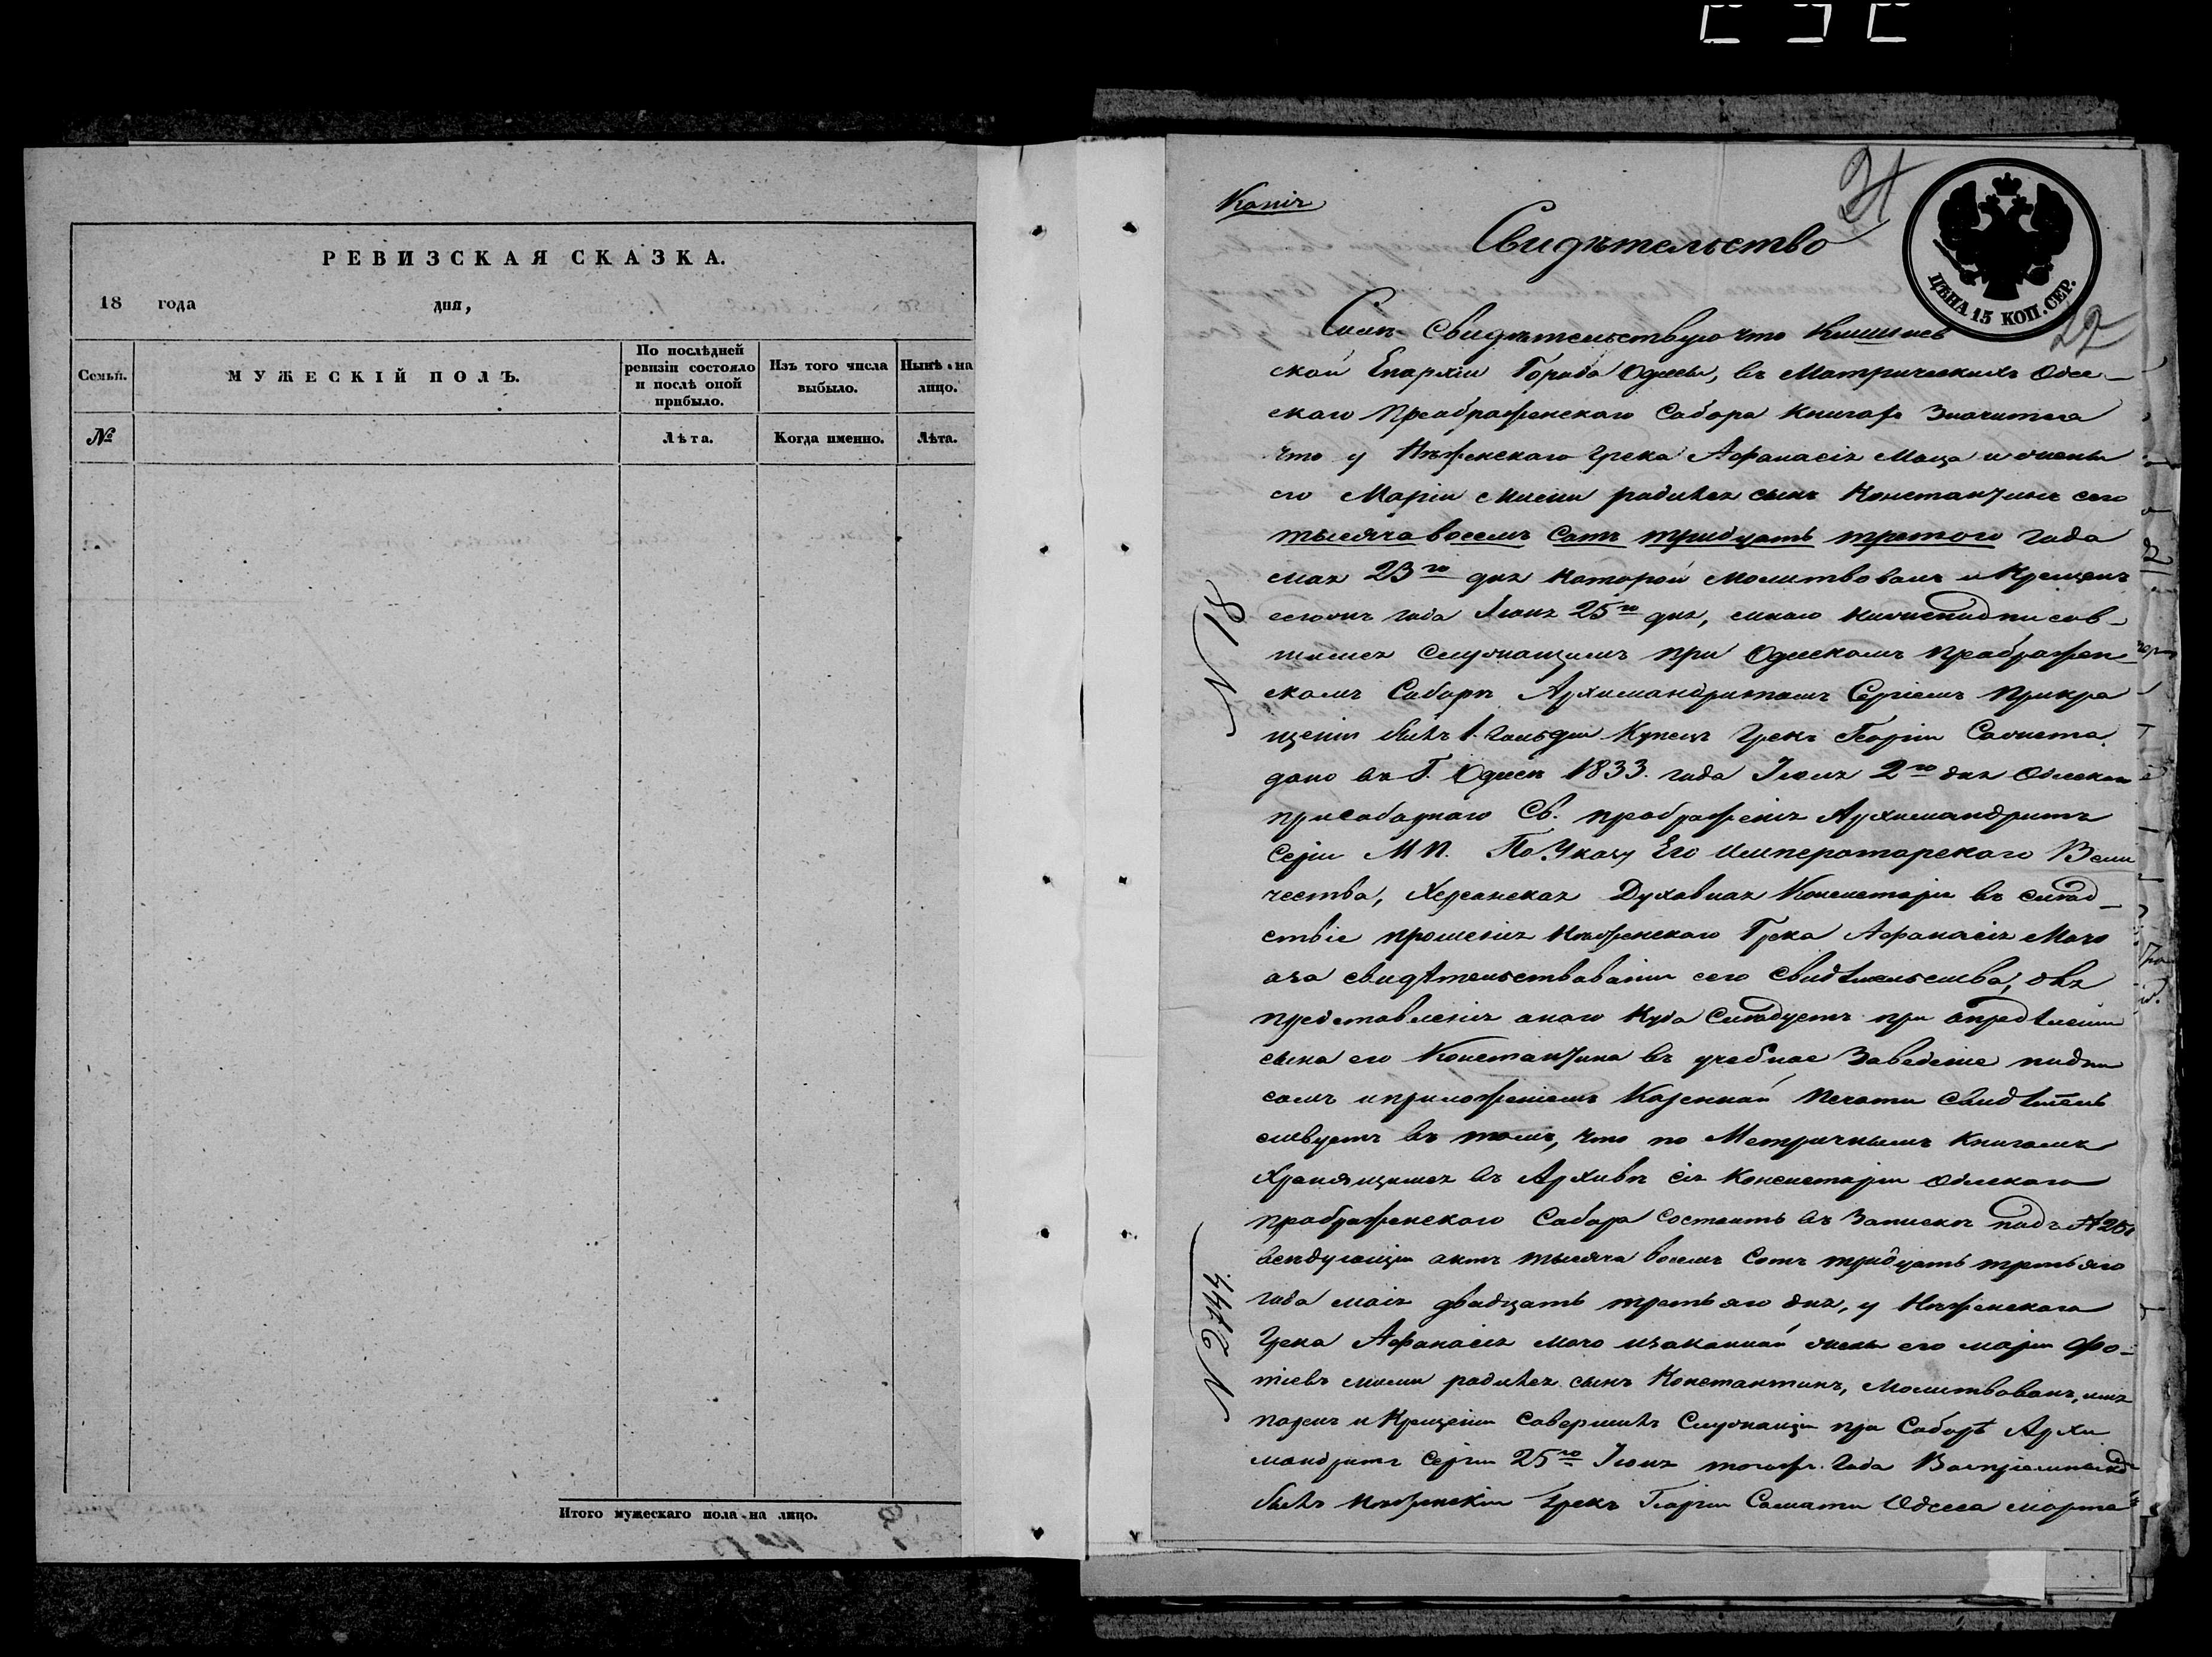 РЕВИЗСКАЯ СКАЗКА.
18 года дня,
Семьи.
МУЖЕСКІЙ ПОЛЪ.
По послѣдней
ревизіи состояло
и послѣ оной
прибыло.
Изъ того числа
выбыло.
Нынѣ на
лицо.
№
Лѣта.
Когда именно.
Лѣта.
Итого мужескаго пола на лицо.
Копія
21
Свидѣтельство
ЦѢНА 15 КОП. СЕР.
22
Симъ Свидѣтельствую что Кишинев
ской Епархіи Города Одессы, въ Метрическихъ Одес-
скаго Преображенскаго Собора Книгахъ Значится
что у Нѣженскаго Грека Афанасія Маца и жены
его Маріи родился сынъ Константинъ сего
тысяча восемь Сотъ тридцать третого года
мая 23го дня Которой Молитвованъ и Крещенъ
тогожъ года Іюня 25го дня,
Служащимъ при Одескомъ Преображен
скомъ Соборѣ Архимандритомъ Сергіемъ Прикре
щеніи былъ 1. Гильдіи Купецъ Грекъ Георгіи
дано въ Г. Одесѣ 1833. года Іюля 2го дня Одескаго
Св. преображенія Архимандритъ
Сергіи М П. По Указу Его Императорскаго Вели
чества, Херсонская Духовная Консисторія въ слѣд-
ствіе прошенія Нѣженскаго Грека Афанасія Мачо
оза свидѣтельствованіи сего Свидѣтельства, для
представленія онаго Куда Слѣдуетъ при опредѣленіи
сына его Константина въ учебное Заведеніе подпи
сомъ иприложеніемъ Казенной Печати Свидѣтель
ствуетъ въ томъ, что по Метричнымъ Книгамъ
Хранящимся въ Архивѣ сія Консисторіи Одескаго
преображенскаго Собора Состоитъ въ Запискѣ подъ №
акть тысяча восемь Сотъ тридцать третьяго
года маія двадцать третьяго дня, у Нѣженскаго
Грека Афанасія Мачо изаконной жены его маріи Фо-
тіевъ родился сынъ Константинъ, Молитвованъ,
и Крещеніи Совершилъ Служащіи при Соборѣ Архи
мандритъ Сергіи 25го Іюня тогожъ Года
былъ Нѣженскіи Грекъ Георгіи Одесса марта
N 18
N 2744.